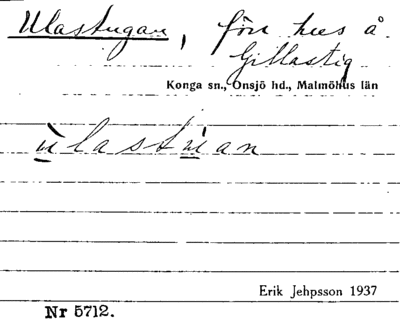 Ulastugan, förr hus å
Gillastig
Konga sn., Onsjö hd., Malmöhus län
ùlastùan
Erik Jehpsson 1937
Nr 5712.